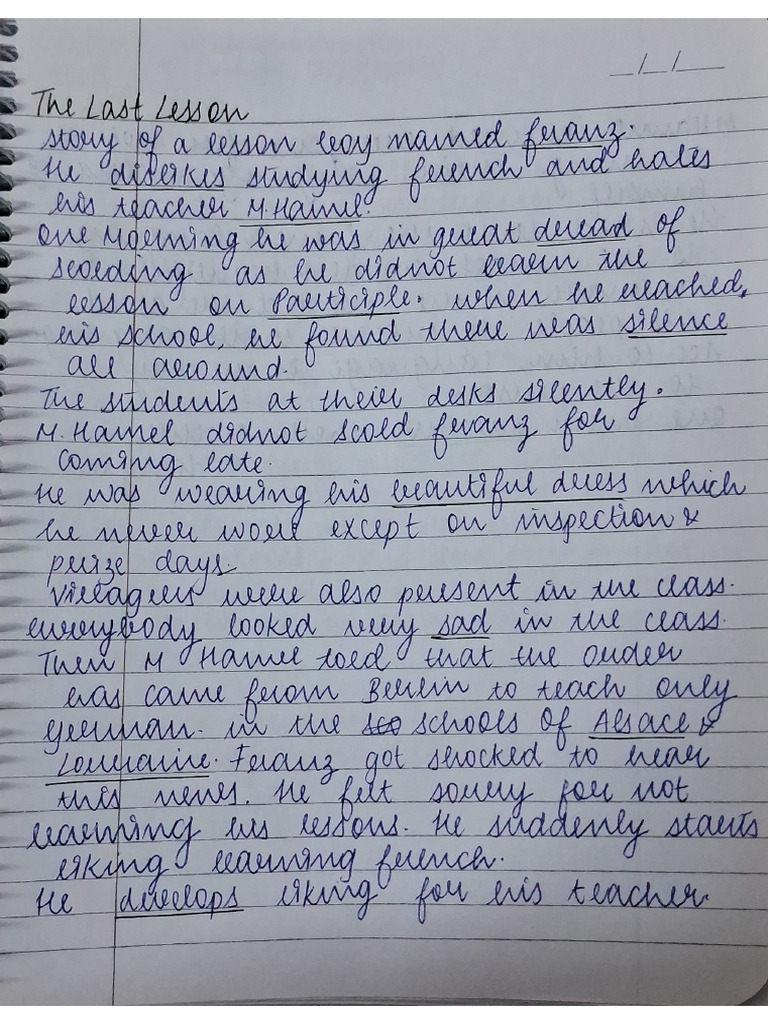 The Last Lesson
story of a lesson boy named franz.
He dislikes studying french and hates
his teacher M.Hamel.
One Morning he was in great dread of
scolding as he didnot learn the
lesson on Participle. when he reached,
his school, he found there was silence
all around.
The students at their desks silently.
M. Hamel didnot scold franz for
coming late.
He was wearing his beautiful dress which
he never wore except on inspection &
prize days.
Villagers were also present in the class.
everybody looked very sad in the class.
Then M Hamel told that the order
has came from Berlin to teach only
german. in the schools of Alsace &
Lorraine. Franz got shocked to hear
this news. He felt sorry for not
learning his lessons. He suddenly starts
liking learning french.
He develops liking for his teacher.